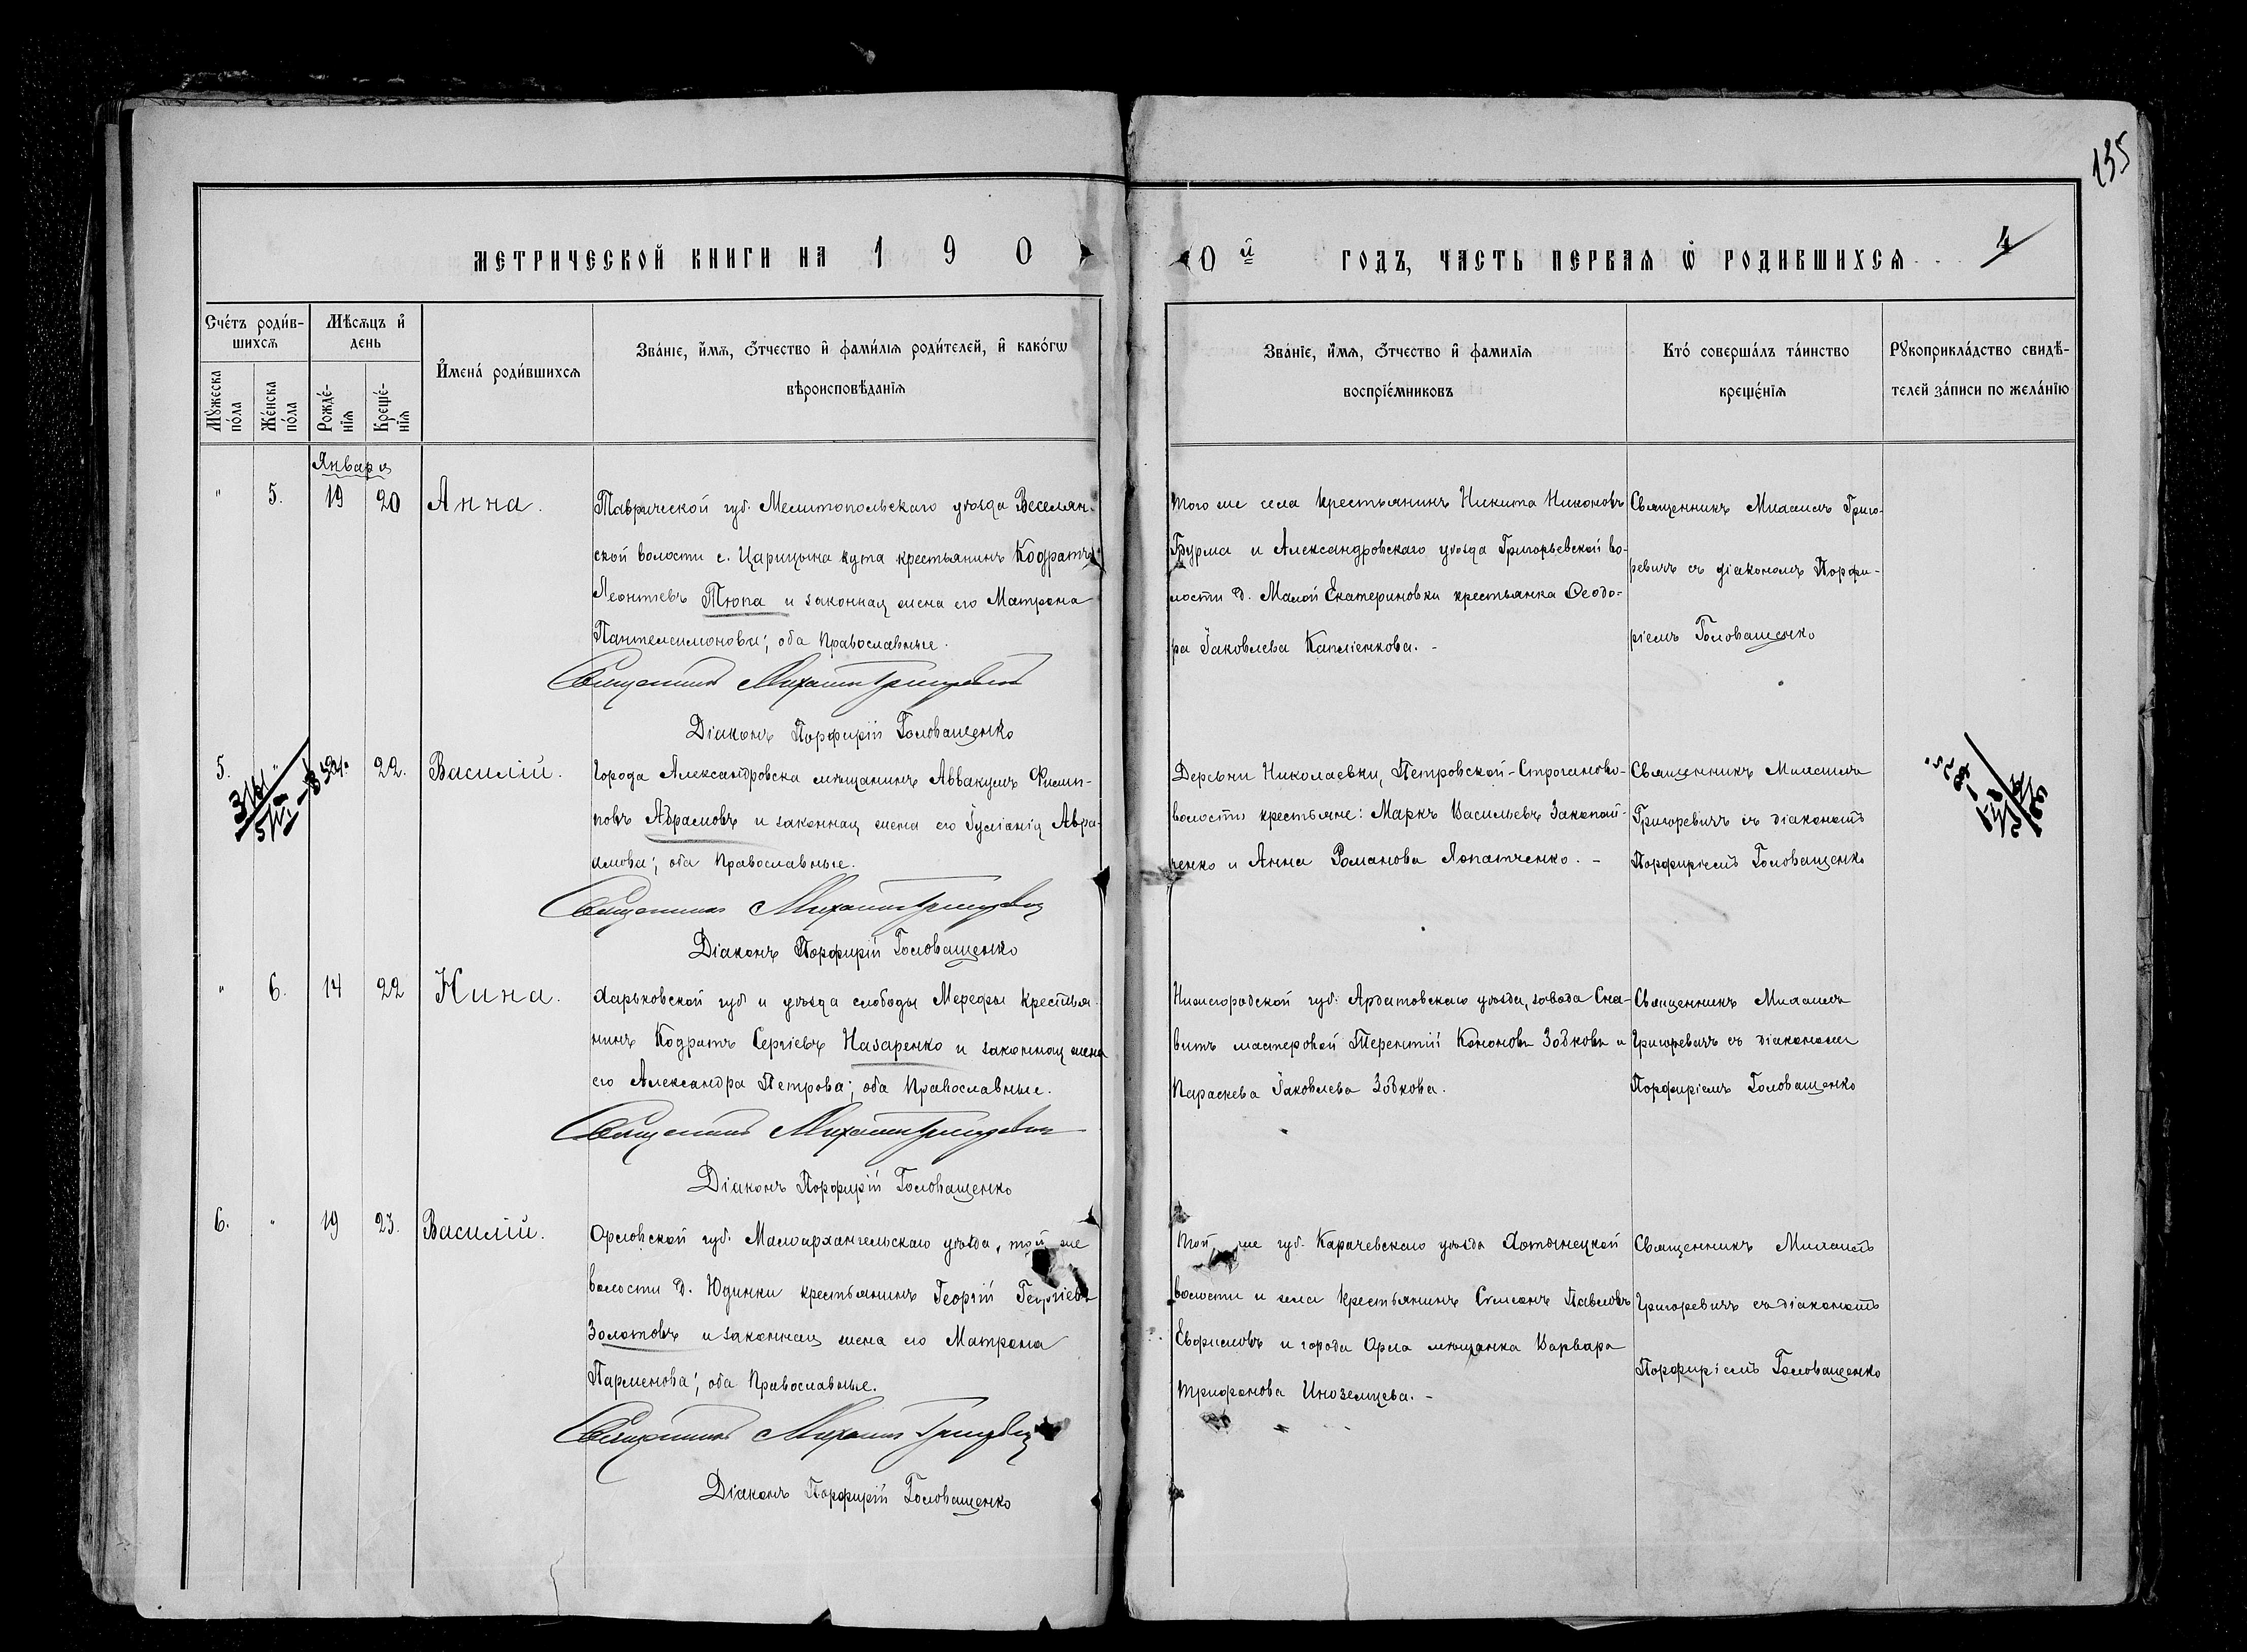 135
МЕТРИЧЕСКОЙ КНИГИ НА 190
0й ГОДЪ, ЧАСТЬ ПЕРВАЯ Ѡ РОДИВШИХСЯ
4
Сче́тъ роди́в-
шихсѧ
Мѣсѧцъ и҆
день
И҆мена́ роди́вшихсѧ
Зва́нїе, и҆́мѧ, ѻ҆́тчество и҆ фами́лїѧ роди́телей, и҆ како́гѡ
вѣроисповѣ́данїѧ
Мꙋ́жеска
по́ла
Же́нска
по́ла
Рожде́-
нїѧ
Креще́-
нїѧ
Зва́нїе, и҆́мѧ, ѻ҆́тчество и҆ фами́лїѧ
воспрїе́мниковъ
Кто̀ соверша́лъ та́инство
креще́нїѧ
Рꙋкоприкла́дство свидѣ́-
телей за́писи по жела́нїю
Января
" 5. 19 20 Анна.
Таврической губ. Мелитопольскаго уѣзда Веселян-
ской волости с. Царицына кута крестьянинъ Кодратъ
Леонтіевъ Тюпа и законная жена его Матрона
Пантелеимонова; оба Православные.
Священникъ Михаилъ Григоревичъ
Діаконъ Порфирій Головащенко
Того же села крестьянинъ Никита Никоновъ
Бурма и Александровскаго уѣзда Григорьевской во-
лости д. Малой Екатериновки крестьянка Ѳеодо-
ра Іаковлева Каплієнкова. -
Священникъ Михаилъ Григо-
ревичъ съ діакономъ Порфи-
ріемъ Головащенко
5. " 22. Василій.
Города Александровска мѣщанинъ Аввакумъ Филип-
повъ Абрамовъ и законная жена его Іуліанія Авра-
амова; оба Православные.
Священникъ Михаилъ Григоревичъ
Діаконъ Порфирій Головащенко
Деревни Николаевки, Петровской-Строганово-
волости крестьяне: Маркъ Васильевъ Закопай-
ченко и Анна Романова Лопатченко. -
Священникъ Михаилъ
Григоревичъ съ діакономъ
Порфиріемъ Головащенко
" 6. 14 22 Нина.
Харьковской губ и уѣзда слободы Мерефы крестья-
нинъ Кодратъ Сергіевъ Назаренко и законная жена
его Александра Петрова; оба Православные.
Священникъ Михаилъ Григоревичъ
Діаконъ Порфирій Головащенко
Нижегородской губ. Ардатовскаго уѣзда, завода Сна-
вить мастеровой Терентій Кононовъ Зобковъ и
Параскева Іаковлева Зобкова.
Священникъ Михаилъ
Григоревичъ съ діакономъ
Порфиріемъ Головащенко
6. " 19 23. Василій.
Орловской губ. Малоархангельскаго уѣзда, той же
волости д. Юдинки крестьянинъ Георгій Георгіевъ
Золотовъ и законная жена его Матрона
Парменова; оба Православные.
Священникъ Михаилъ Григоревичъ
Діаконъ Порфирій Головащенко
Той же губ. Карачевскаго уѣзда Хотынецкой
волости и села крестьянинъ Симеонъ Павловъ
Евфимовъ и города Орла мѣщанка Варвара
Трифонова Иноземцева. -
Священникъ Михаилъ
Григоревичъ съ діакономъ
Порфиріемъ Головащенко